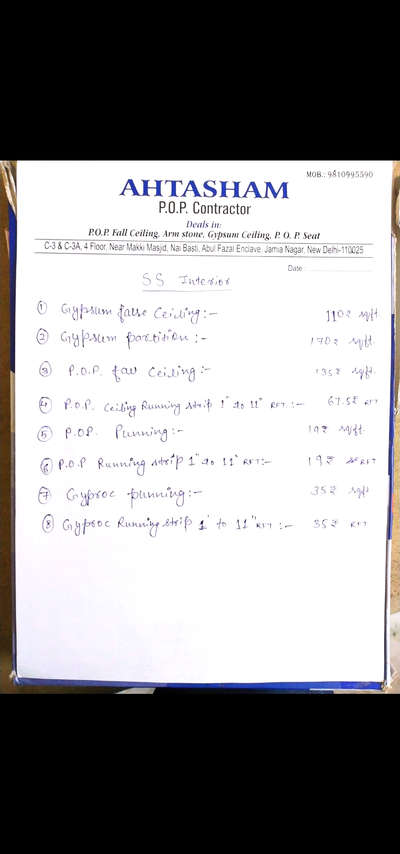 MOB.: 9810995590
AHTASHAM
P.O.P. Contractor
Deals in:
P.O.P. Fall Ceiling, Arm stone, Gypsum Ceiling, P. O. P. Seat
C-3 & C-3A, 4 Floor, Near Makki Masjid, Nai Basti, Abul Fazal Enclave, Jamia Nagar, New Delhi-110025
Date
SS Interior
① Gypsum false Ceiling :- 110₹ sqft
② Gypsum partition :- 170₹ sqft.
③ P.O.P. fall Ceiling :- 135₹ sqft
④ P.O.P. Ceiling Running strip 1" to 11" RFT. :- 67.5₹ RFT
⑤ P.O.P. Punning :- 19₹ sqft.
⑥ P.O.P Running strip 1" to 11" RFT :- 19₹ RFT
⑦ Gyproc punning :- 35₹ sqft
⑧ Gyproc Running strip 1' to 11" RFT :- 35₹ RFT